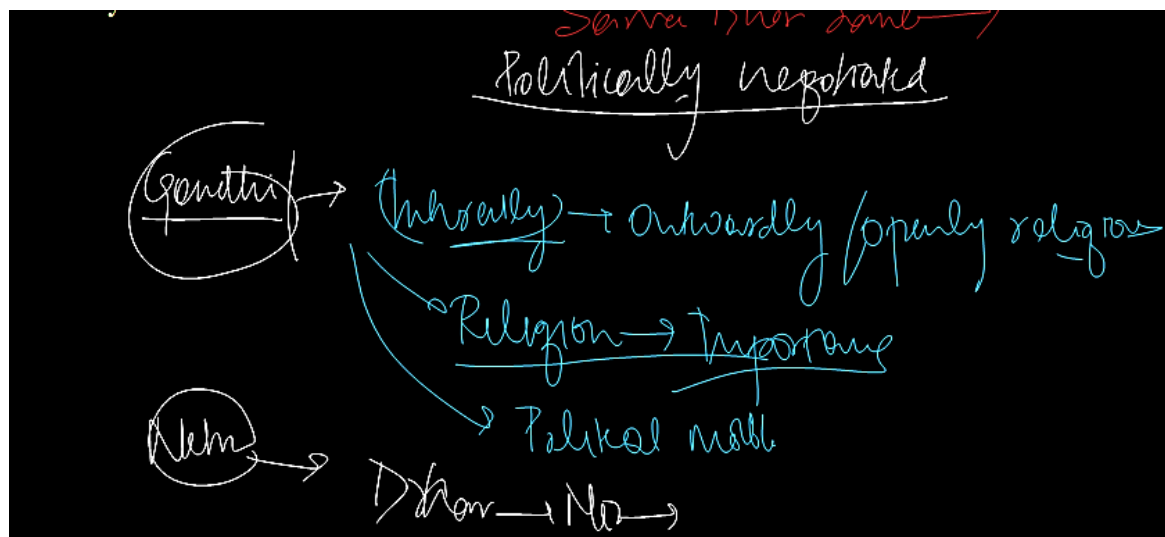 Politically negotiated
Gandhi → Inherently → Outwardly / openly religious
Religion → Importance
Political mobili
Nehru →